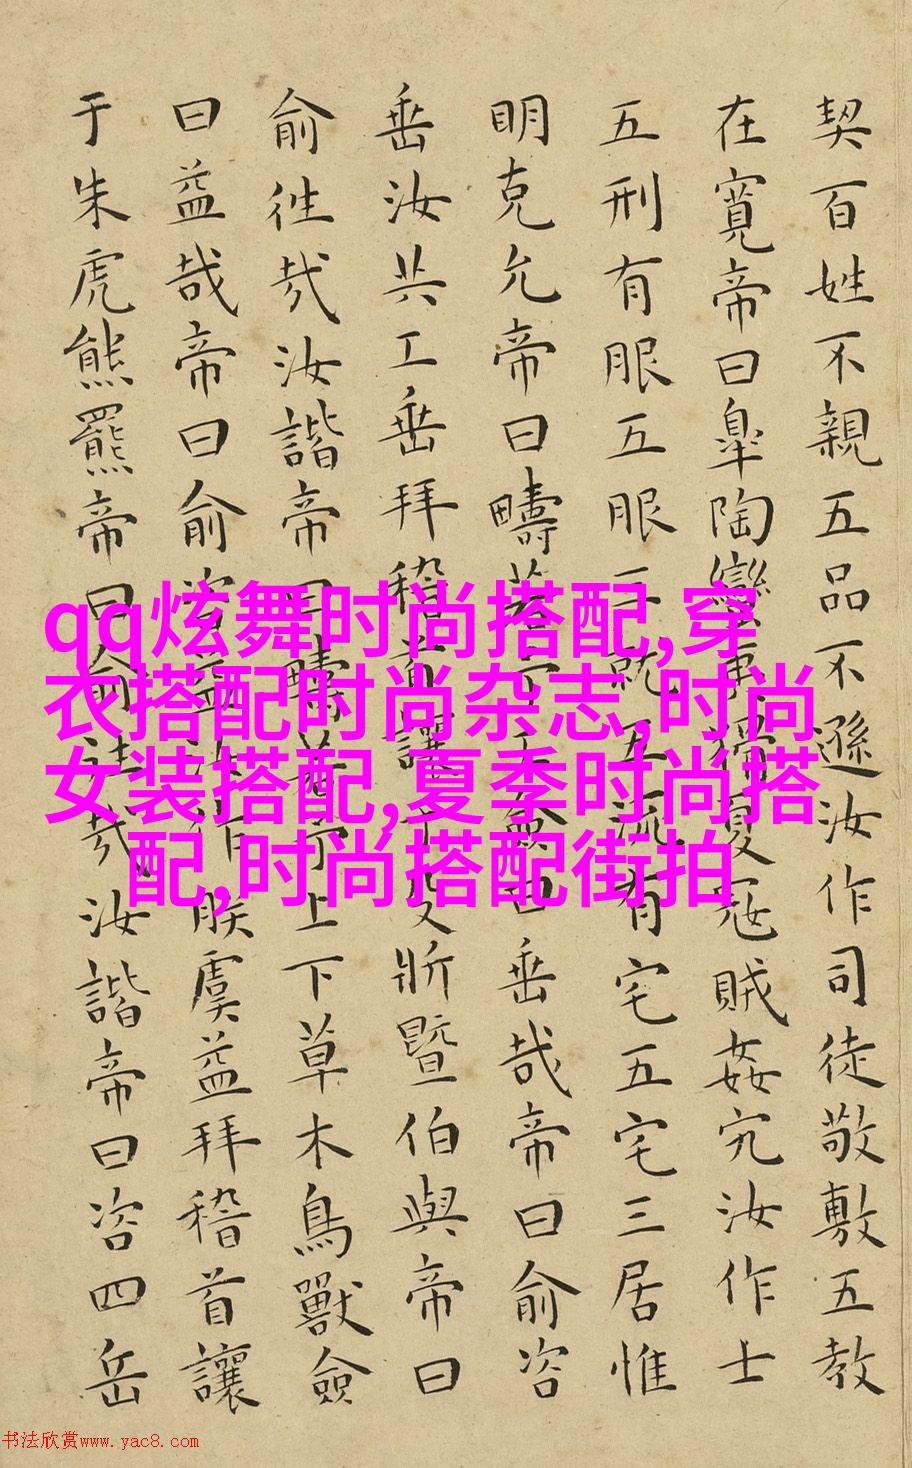 契百姓不親五品不遜汝作司徒敬敷五教
在寬帝曰皐陶蠻夷猾夏寇賊姦宄汝作士
五刑有服五服三就五流有宅五宅三居惟
明克允帝曰疇若予工僉曰垂哉帝曰俞咨
垂汝共工垂拜稽首讓于殳斨暨伯與帝曰
俞往哉汝諧帝曰疇若予上下草木鳥獸僉
曰益哉帝曰俞咨益汝作朕虞益拜稽首讓
于朱虎熊羆帝曰俞往哉汝諧帝曰咨四岳
qq炫舞时尚搭配,穿
衣搭配时尚杂志,时尚
女装搭配,夏季时尚搭
配,时尚搭配街拍
书法欣赏www.yac8.com